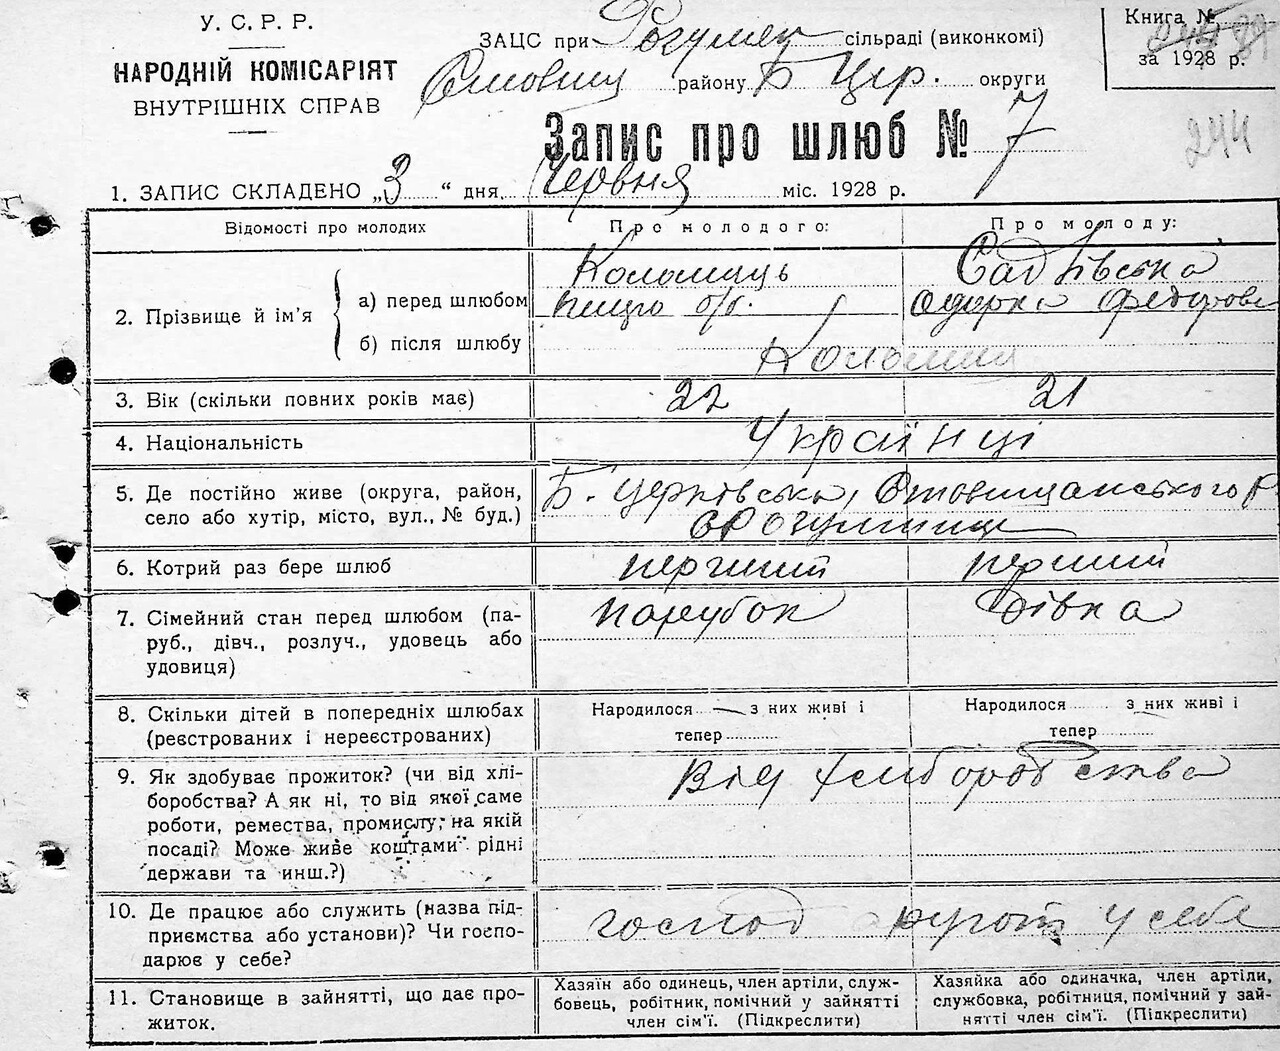 У. С. Р. Р.
НАРОДНІЙ КОМІСАРІЯТ
ВНУТРІШНІХ СПРАВ
ЗАЦС при сільраді (виконкомі)
району Б Цер. округи
Книга №
за 1928 р.
244
Запис про шлюб № 7
1. ЗАПИС СКЛАДЕНО „3 “ дня червня міс. 1928 р.
Відомості про молодих
Про молодого:
Про молоду:
2. Прізвище й ім'я
а) перед шлюбом
б) після шлюбу
Коломиць
Садківська
Одарка Федоров
3. Вік (скільки повних років має)
22
21
4. Національність
Українці
5. Де постійно живе (округа, район,
село або хутір, місто, вул., № буд.)
Б. Церківська, Ставищанського Р
6. Котрий раз бере шлюб
перший
перший
7. Сімейний стан перед шлюбом (па-
руб., дівч., розлуч., удовець або
удовиця)
парубок
дівка
8. Скільки дітей в попередніх шлюбах
(реєстрованих і нереєстрованих)
Народилося — з них живі і
тепер
Народилося з них живі і
тепер
9. Як здобуває прожиток? (чи від хлі-
боробства? А як ні, то від якої саме
роботи, ремества, промислу; на якій
посаді? Може живе коштами рідні
держави та инш.?)
Від хліборобства
10. Де працює або служить (назва під-
приємства або установи)? Чи госпо-
дарює у себе?
господ у себе
11. Становище в зайнятті, що дає про-
житок.
Хазяїн або одинець, член артіли, служ-
бовець, робітник, помічний у зайнятті
член сім'ї. (Підкреслити)
Хазяйка або одиначка, член артіли,
службовка, робітниця, помічний у зай-
нятті член сім'ї. (Підкреслити)